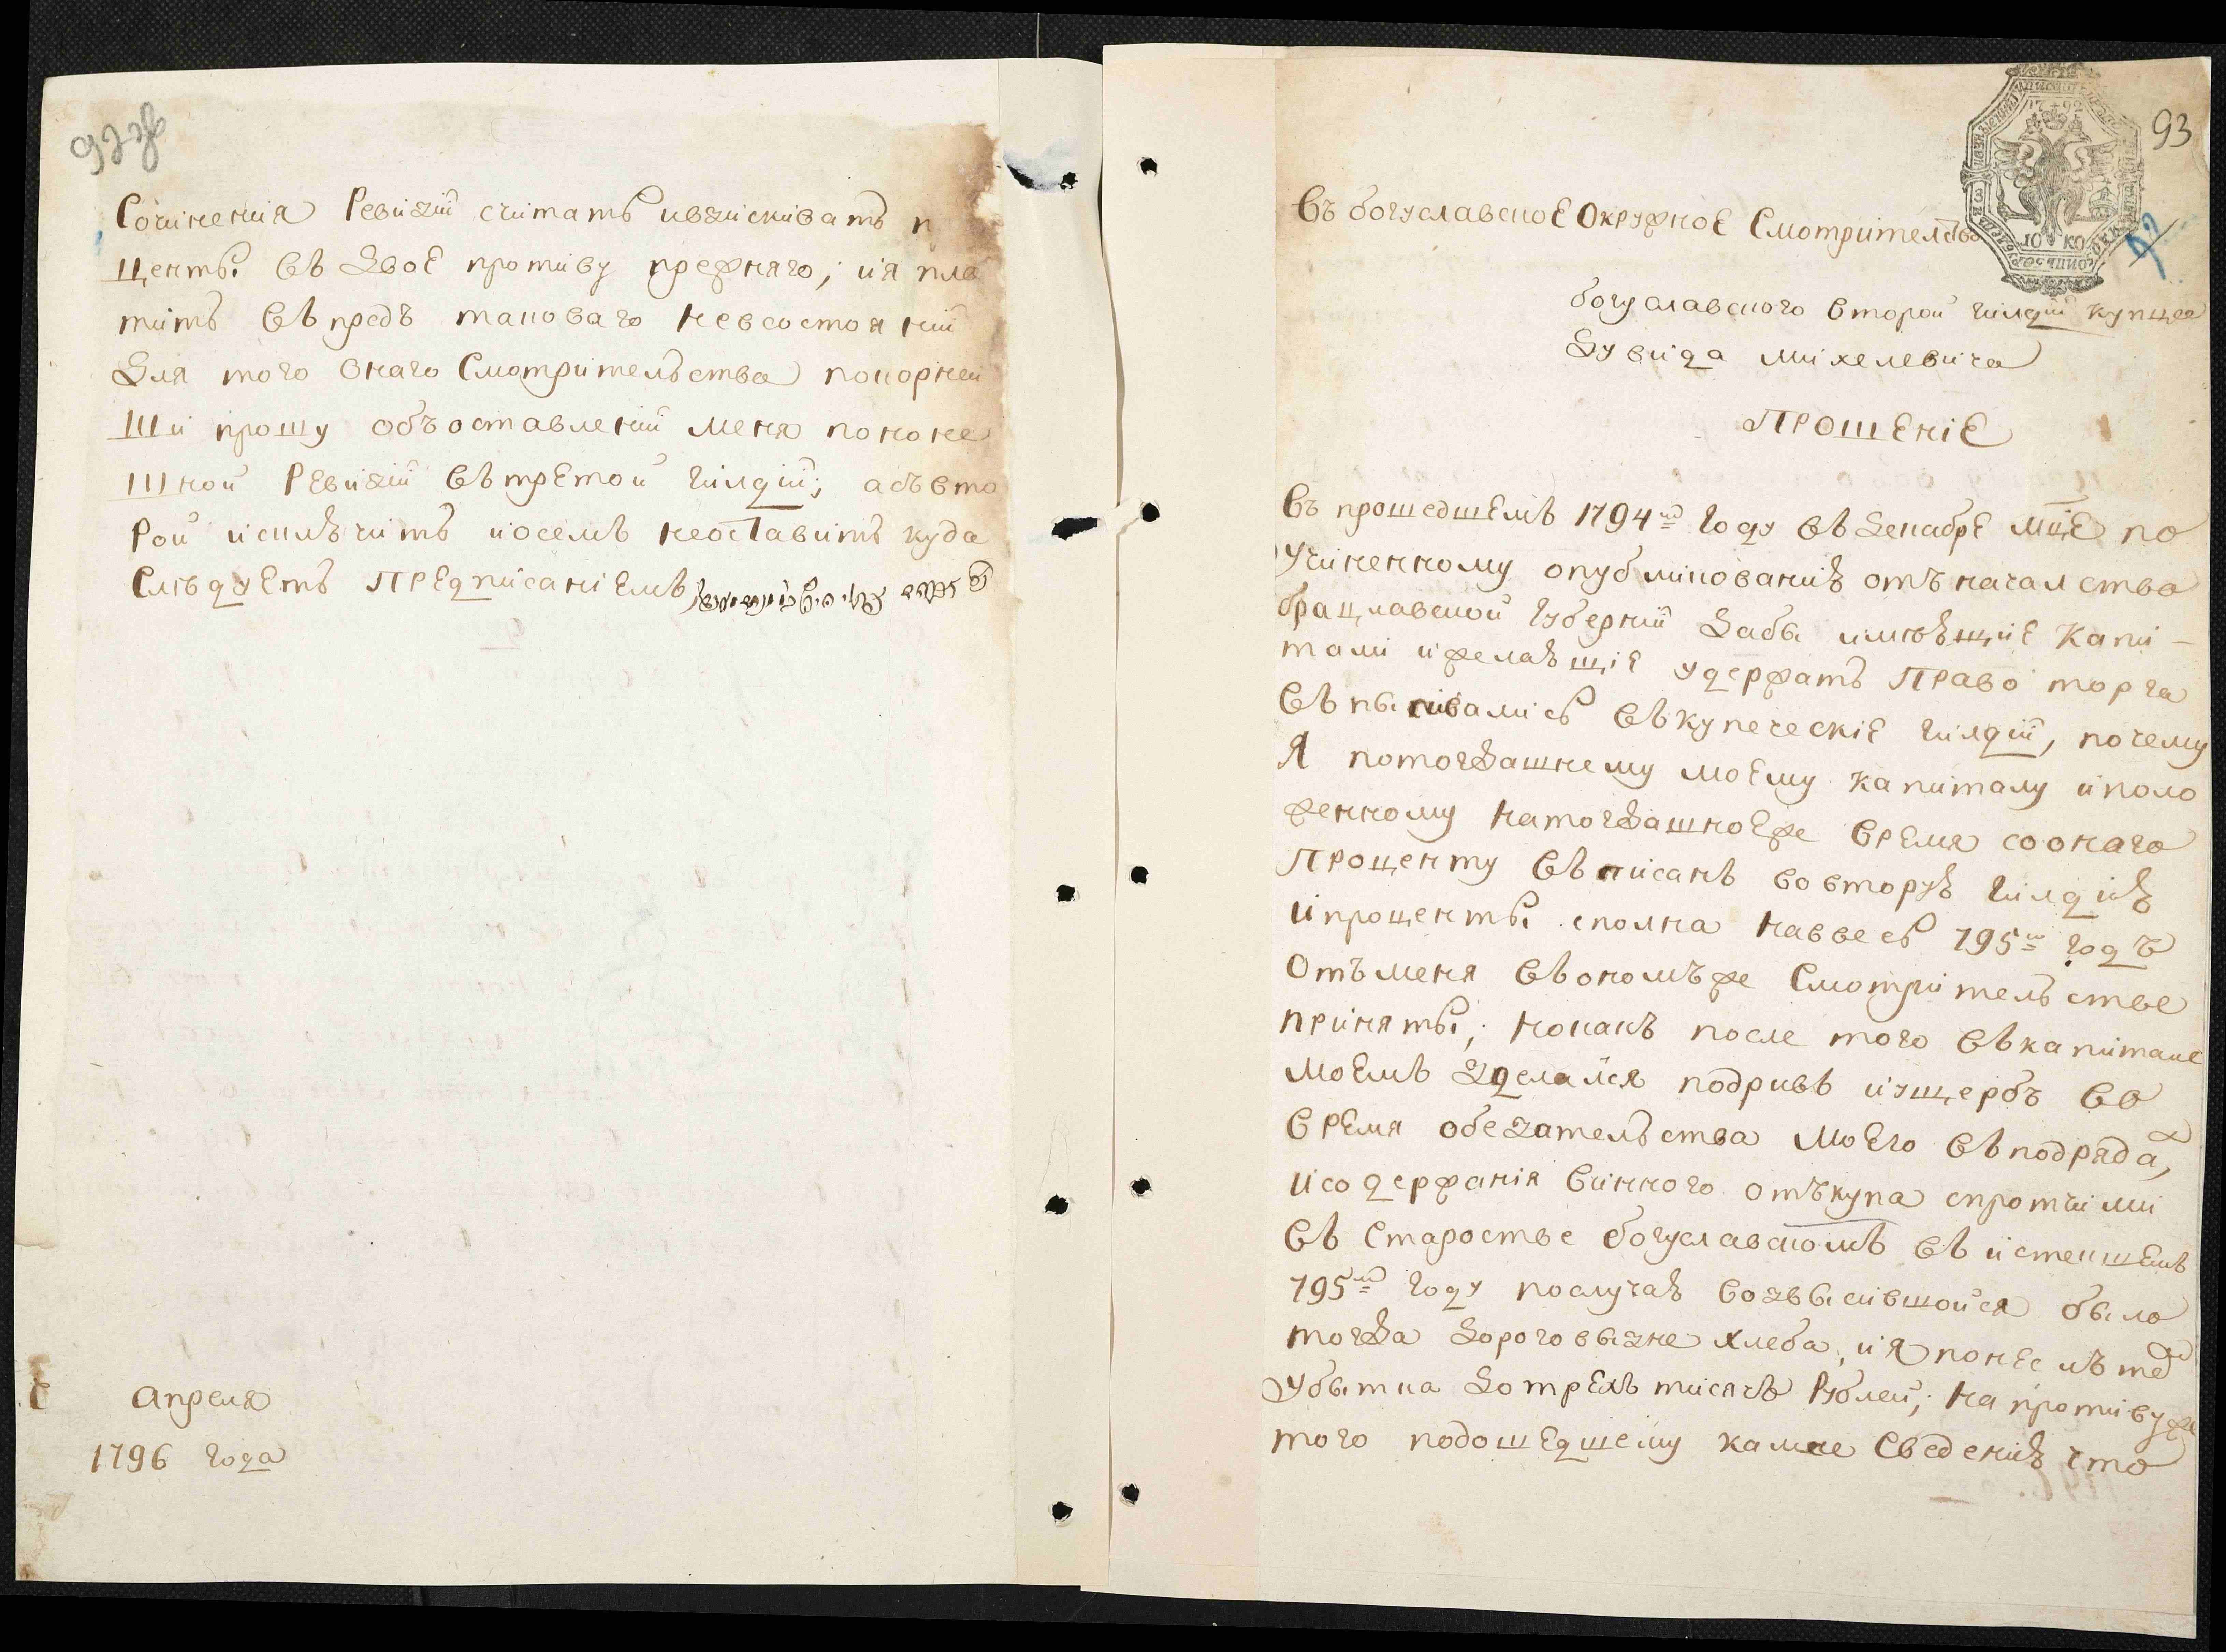 Сочинения Ревизіи считать ивзискивать п
центы въ двоє противу прежняго; ия пла
тить въпредъ таковаго невсостояніи
для того онаго Смотрительства покорней
ши прошу объоставленіи меня по
шной Ревизіи въ третой гилдіи; асъвто
рой исключить иосемъ неоставить куда
Слѣдуетъ предписаніемъ
апреля
1796 года
93
Въ богуславскоє Окружноє Смотрителство
1792
10 КО
богуславского второй гилдіи купца
Дувида михелевича
Прошеніе
Въ прошедшемъ 1794м году въ декабре мце по
учиненному опубликованию отъначалства
брацлавской губерніи дабы имеющие капи-
тали ижелающіе удержать право торга
въписивались въкупеческіе гилдіи, почему
Я потогдашнему моему капиталу иполо
женному натогдашноеже время соонаго
проценту въписанъ вовторую гилдию
ипроценты сполна наввесь 795й годъ
отъменя вьономъже Смотрительстве
приняты; нокакъ после того въкапитале
моемъ зделался подривъ иущербъ во
время обезательства моего въподрядах,
исодержанія винного откупа спротчими
въ Старостве богуславскомъ въ истекшемъ
795м году послучаю возвысившойся было
тогда дороговызне хлеба, ия понеслъ
убытка дотрехъ тисячъ рублей; напротивуже
того подошедшему камне сведению что